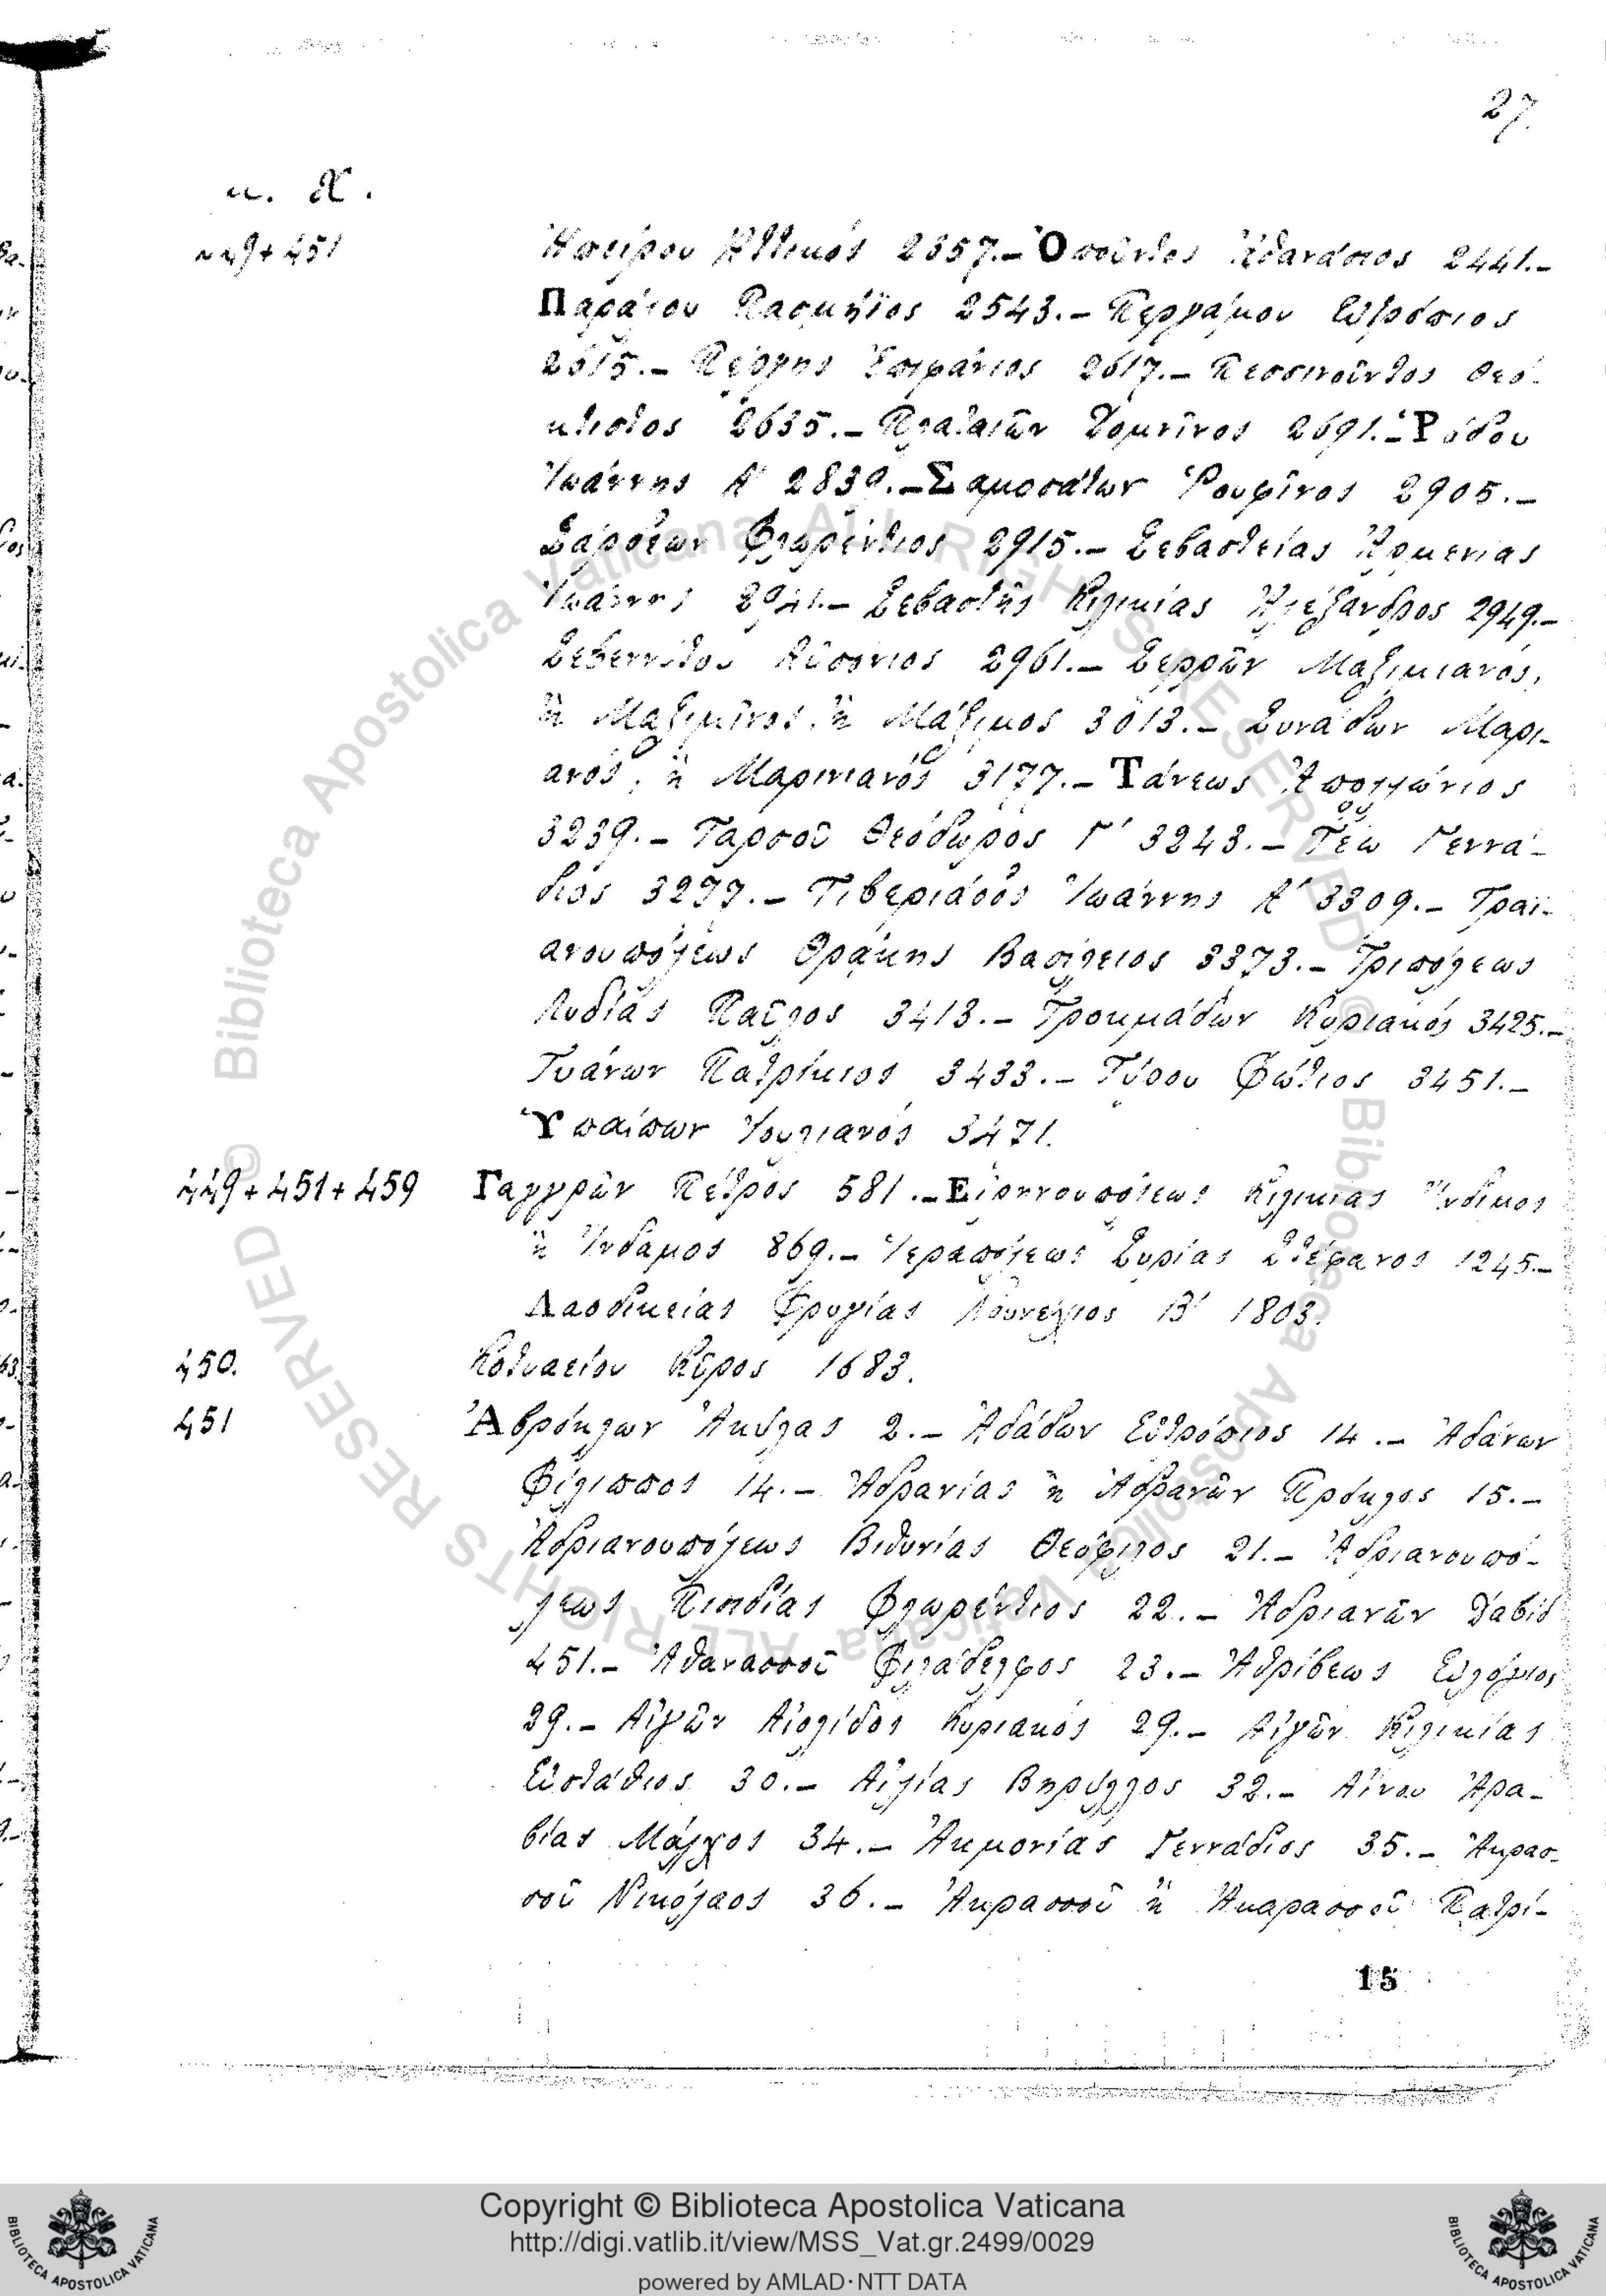 27.
μ. Χ.
449+451 Ἠπείρου Ἀττικός 2357.– Ὀποῦντος Ἀθανάσιος 2441.–
Παραίου Πασμήϊος 2543.– Περγάμου Εὐτρόπιος
2615.– Πέργης Ἐπιφάνιος 2617.– Πεσσινοῦντος Θεό-
κτιστος 2635.– Πλαταιῶν Δομνῖνος 2691.– Ῥόδου
Ἰωάννης Α' 2839.– Σαμοσάτων Ῥουφῖνος 2905.–
Σάρδεων Φλωρέντιος 2915.– Σεβαστείας Ἀρμενίας
Ἰωάννης 2941.– Σεβαστῆς Κιλικίας Ἀλέξανδρος 2949.–
Σεβεννύτου Αὐσόνιος 2961.– Σερρῶν Μαξιμιανός,
ἢ Μαξιμῖνος, ἢ Μάξιμος 3013.– Συνάδων Μαρι-
ανός, ἢ Μαρινιανός 3177.– Τάνεως Ἀπολλώνιος
3239.– Ταρσοῦ Θεόδωρος Γ' 3243.– Τέω Γεννά-
διος 3277.– Τιβεριάδος Ἰωάννης Α' 3309.– Τραϊ-
ανουπόλεως Θράκης Βασίλειος 3373.– Τριπόλεως
Λυδίας Παῦλος 3413.– Τροκμάδων Κυριακός 3425.–
Τυάνων Πατρίκιος 3433.– Τύρου Φώτιος 3451.–
Ὑπαίπων Ἰουλιανός 3471.
449+451+459 Γαγγρῶν Πέτρος 581.– Εἰρηνουπόλεως Κιλικίας Ἴνδιμος
ἢ Ἴνδαμος 869.– Ἱεραπόλεως Συρίας Στέφανος 1245.–
Λαοδικείας Φρυγίας Νουνέχιος Β' 1803.
450. Κοτυαείου Κῦρος 1683.
451 Ἀβρόκλων Ἀκύλας 2.– Ἀδάδων Εὐτρόπιος 14.– Ἀδάνων
Φίλιππος 14.– Ἀδρανίας ἢ Ἀδρανῶν Πρόκλος 15.–
Ἀδριανουπόλεως Βιθυνίας Θεόφιλος 21.– Ἀδριανουπό-
λεως Πισιδίας Φλωρέντιος 22.– Ἀδριανῶν Δαβίδ
451.– Ἀθανασσοῦ Φιλάδελφος 23.– Ἀθρίβεως Εὐλόγιος
29.– Αἰγῶν Αἰολίδος Κυριακός 29.– Αἰγῶν Κιλικίας
Εὐστάθιος 30.– Αἰλίας Βηρύλλος 32.– Αἴνου Ἀρα-
βίας Μάλχος 34.– Ἀκμονίας Γεννάδιος 35.– Ἀκρασ-
σοῦ Νικόλαος 36.– Ἀκρασσοῦ ἢ Ἀκαρασσοῦ Πατρί-
15
Copyright © Biblioteca Apostolica Vaticana
http://digi.vatlib.it/view/MSS_Vat.gr.2499/0029
powered by AMLAD·NTT DATA